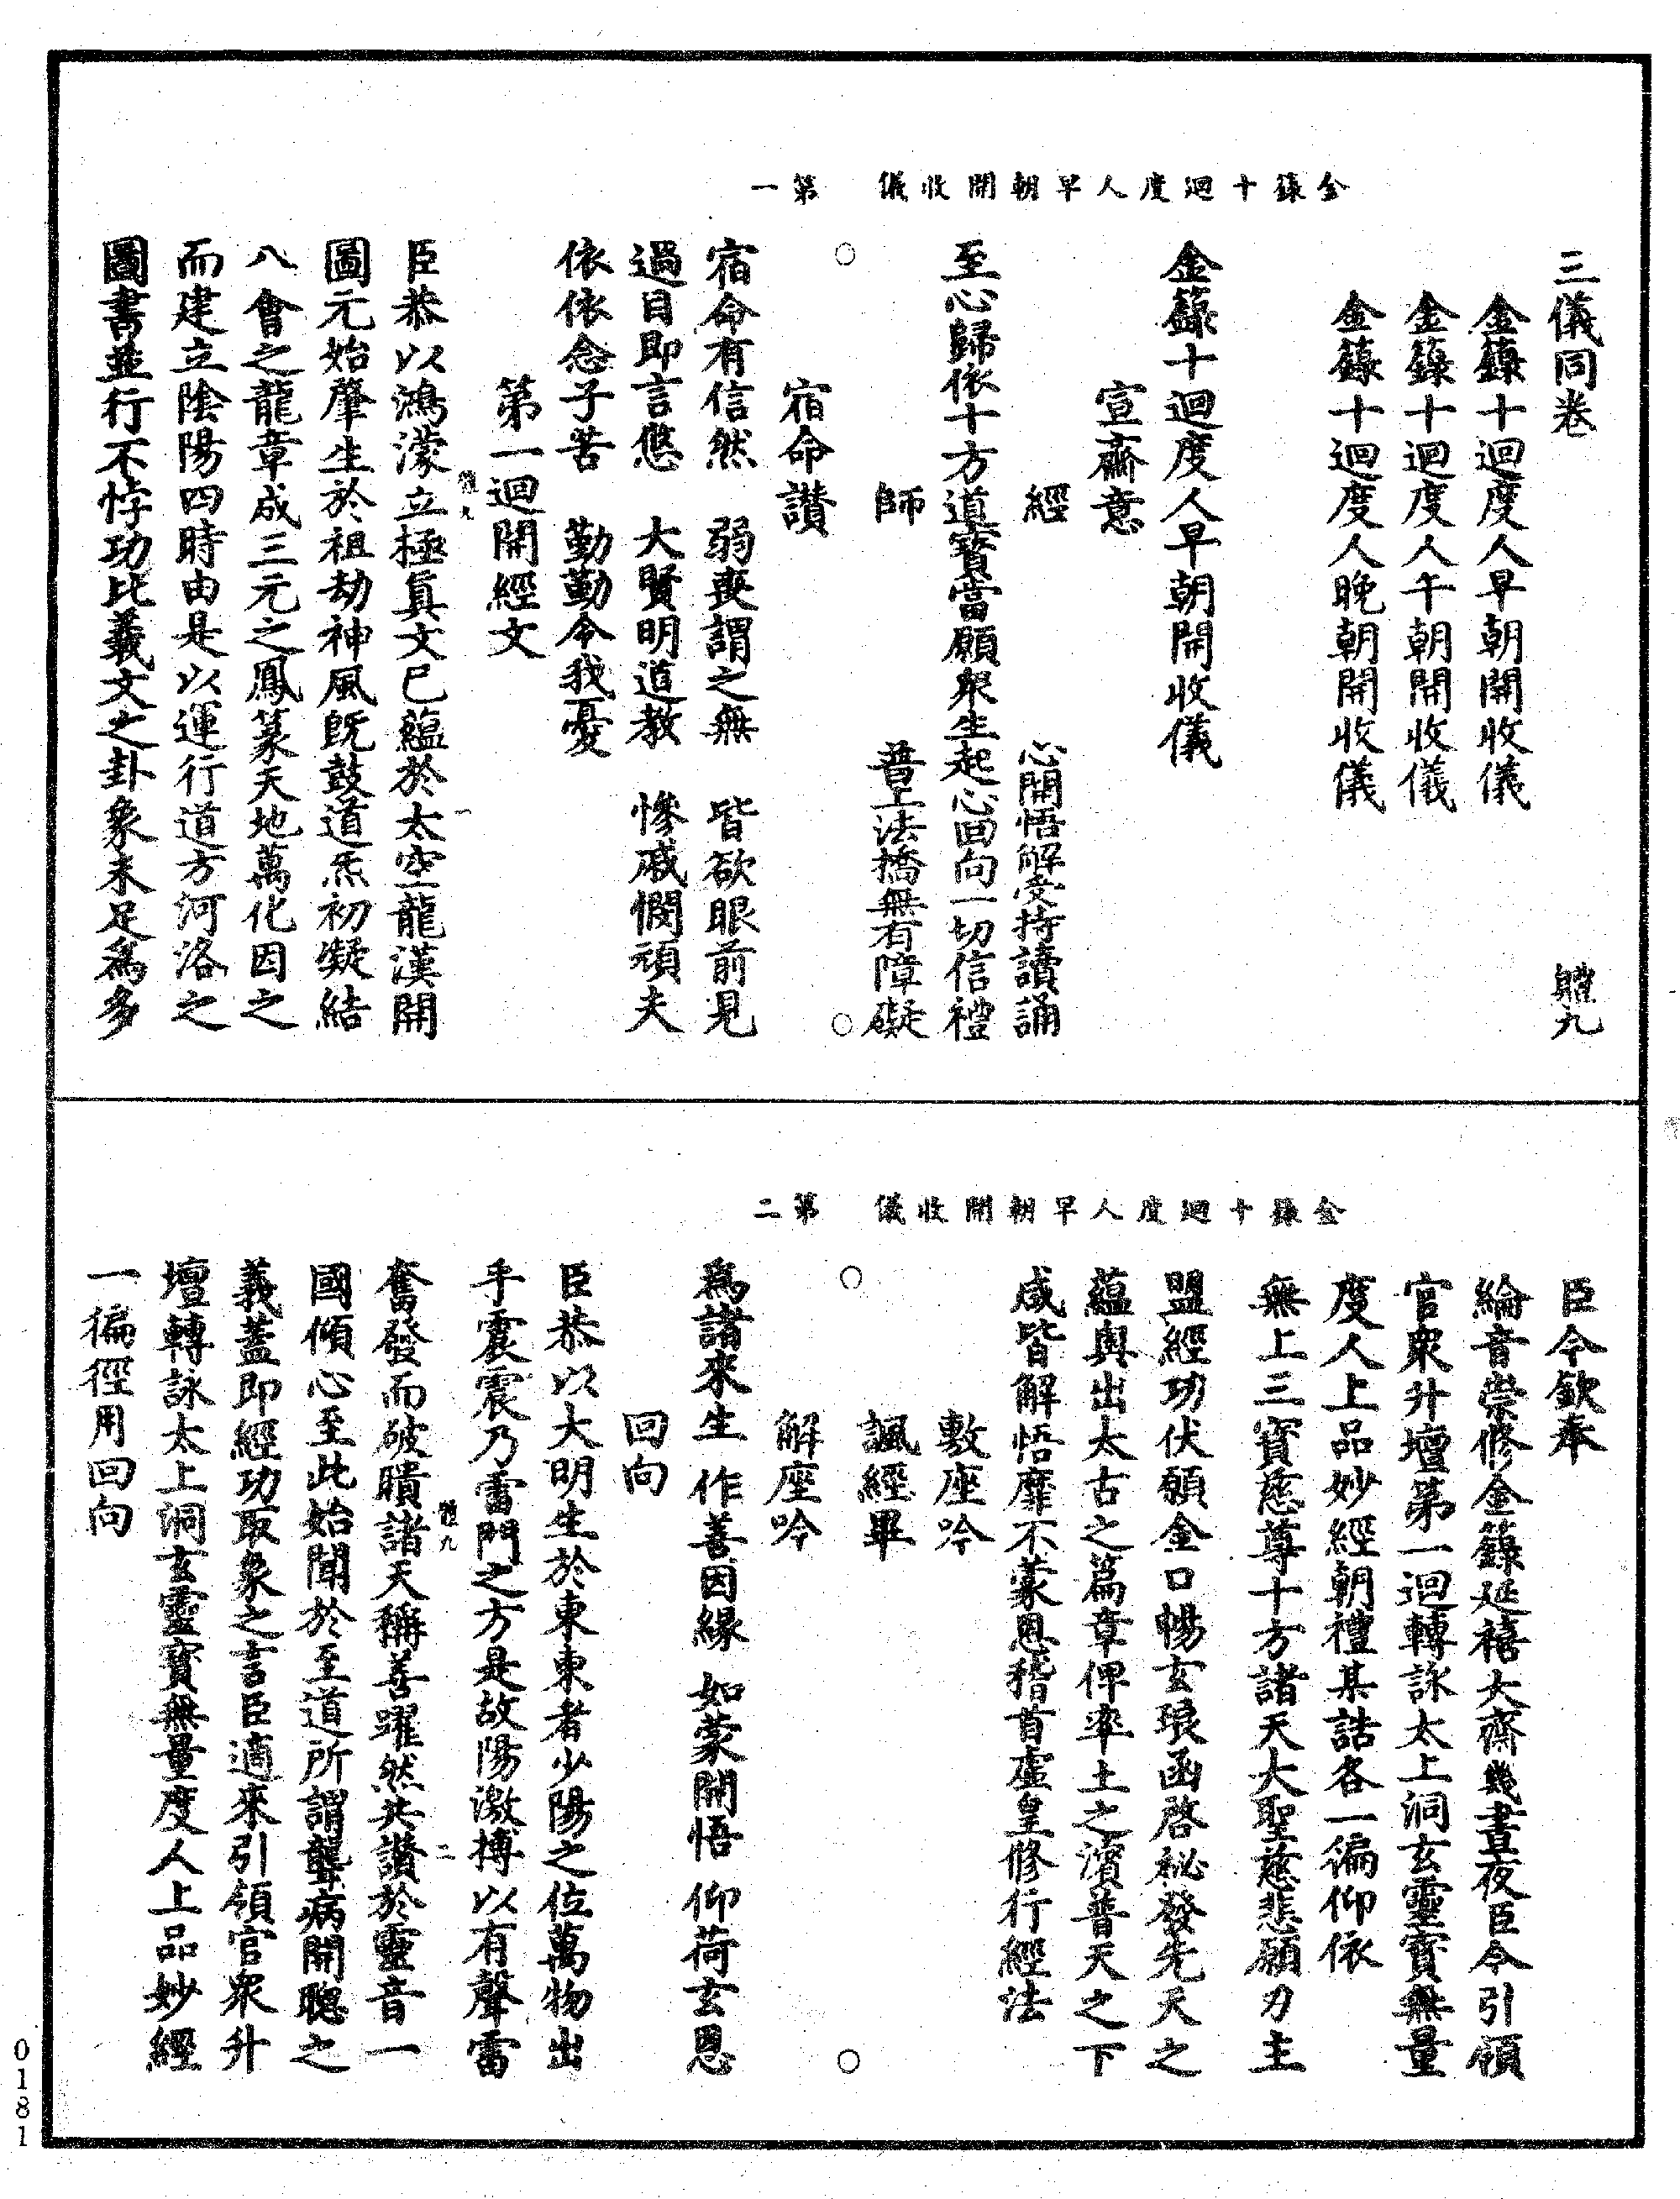 金籙十迴度人早朝開收儀　第一
三儀同卷　體九
金籙十迴度人早朝開收儀
金籙十迴度人午朝開收儀
金籙十迴度人晚朝開收儀
金籙十迴度人早朝開收儀
宣齋意
經　心開悟解受持讀誦
至心歸依十方道寶當願衆生起心回向一切信禮
師　普上法橋無有障礙
○　○
宿命讃
宿命有信然　弱喪謂之無　皆欲眼前見
過目即言悠　大賢明道教　慘戚憫頑夫
依依念子苦　勤勤令我憂
第一迴開經文
體九　一
臣恭以鴻濛立極眞文已蘊於太空龍漢開
圖元始肇生於祖劫神風旣鼓道炁初凝結
八會之龍章成三元之鳳篆天地萬化因之
而建立陰陽四時由是以運行道方河洛之
圖書並行不悖功比羲文之卦象未足爲多
金籙十迴度人早朝開收儀　第二
臣今欽奉
綸音崇修金籙延禧大齋幾晝夜臣今引領
官衆升壇第一迴轉詠太上洞玄靈寶無量
度人上品妙經朝禮某誥各一徧仰依
無上三寶慈尊十方諸天大聖慈悲願力主
盟經功伏願金口暢玄琅函啓祕發先天之
蘊奥出太古之篇章俾率土之濱普天之下
咸皆解悟靡不蒙恩稽首虛皇修行經法
敷座吟
諷經畢
○　○
解座吟
爲諸來生　作善因緣　如蒙開悟　仰荷玄恩
回向
臣恭以大明生於東東者少陽之位萬物出
乎震震乃雷門之方是故陽激搏以有聲雷
體九　二
奮發而破聵諸天稱善躍然共讃於靈音一
國傾心至此始聞於至道所謂聾病開聰之
義蓋即經功取象之言臣適來引領官衆升
壇轉詠太上洞玄靈寶無量度人上品妙經
一徧徑用回向
0181